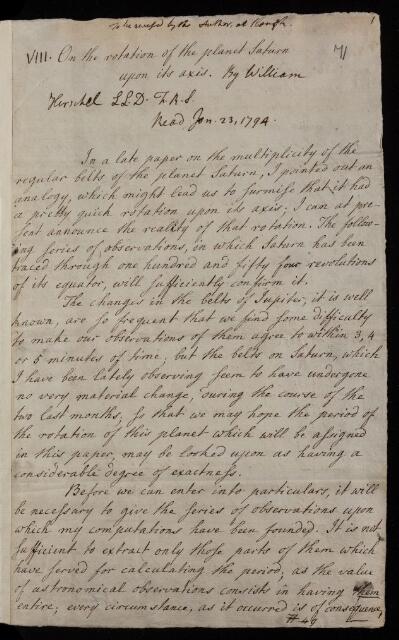 To be revised by the Author, at Slough.
1
VIII. On the rotation of the planet Saturn
upon its axis. By William
Herschel LLD. F.R.S.
Read Jan. 23, 1794.
In a late paper on the multiplicity of the
regular belts of the planet Saturn, I pointed out an
analogy, which might lead us to surmise that it had
a pretty quick rotation upon its axis; I can at pre-
sent announce the reality of that rotation. The follow-
ing series of observations, in which Saturn has been
traced through one hundred and fifty four revolutions
of its equator, will sufficiently confirm it.
The changes in the belts of Jupiter, it is well
known, are so frequent that we find some difficulty
to make our observations of them agree to within 3, 4
or 5 minutes of time; but the belts on Saturn, which
I have been lately observing seem to have undergone
no very material change, during the course of the
two last months, so that we may hope the period of
the rotation of this planet which will be assigned
in this paper, may be looked upon as having a
considerable degree of exactness.
Before we can enter into particulars, it will
be necessary to give the series of observations upon
which my computations have been founded. It is not
sufficient to extract only those parts of them which
have served for calculating the period, as the value
of astronomical observations consists in having them
entire; every circumstance, as it occurred is of consequence,
# 49